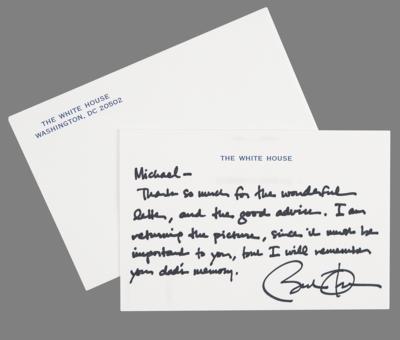 THE WHITE HOUSE
WASHINGTON, DC 20502
THE WHITE HOUSE
Michael—
Thanks so much for the wonderful
letter, and the good advice. I am
returning the picture, since it must be
important to you, but I will remember
your dad's memory.